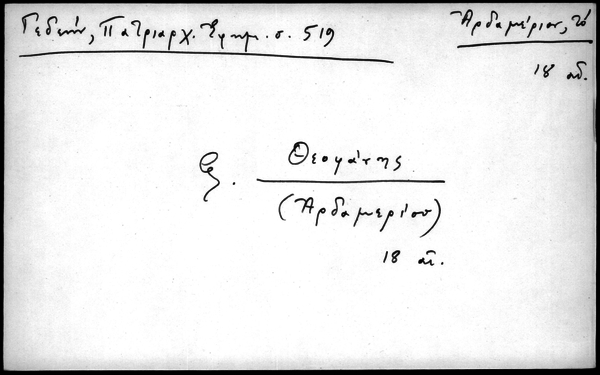 Γεδεών, Πατριαρχ. Ἐφημ. σ. 519
Ἀρδαμέριον, τὸ
18 αἰ.
Θεοφάνης
(Ἀρδαμερίου)
18 αἰ.